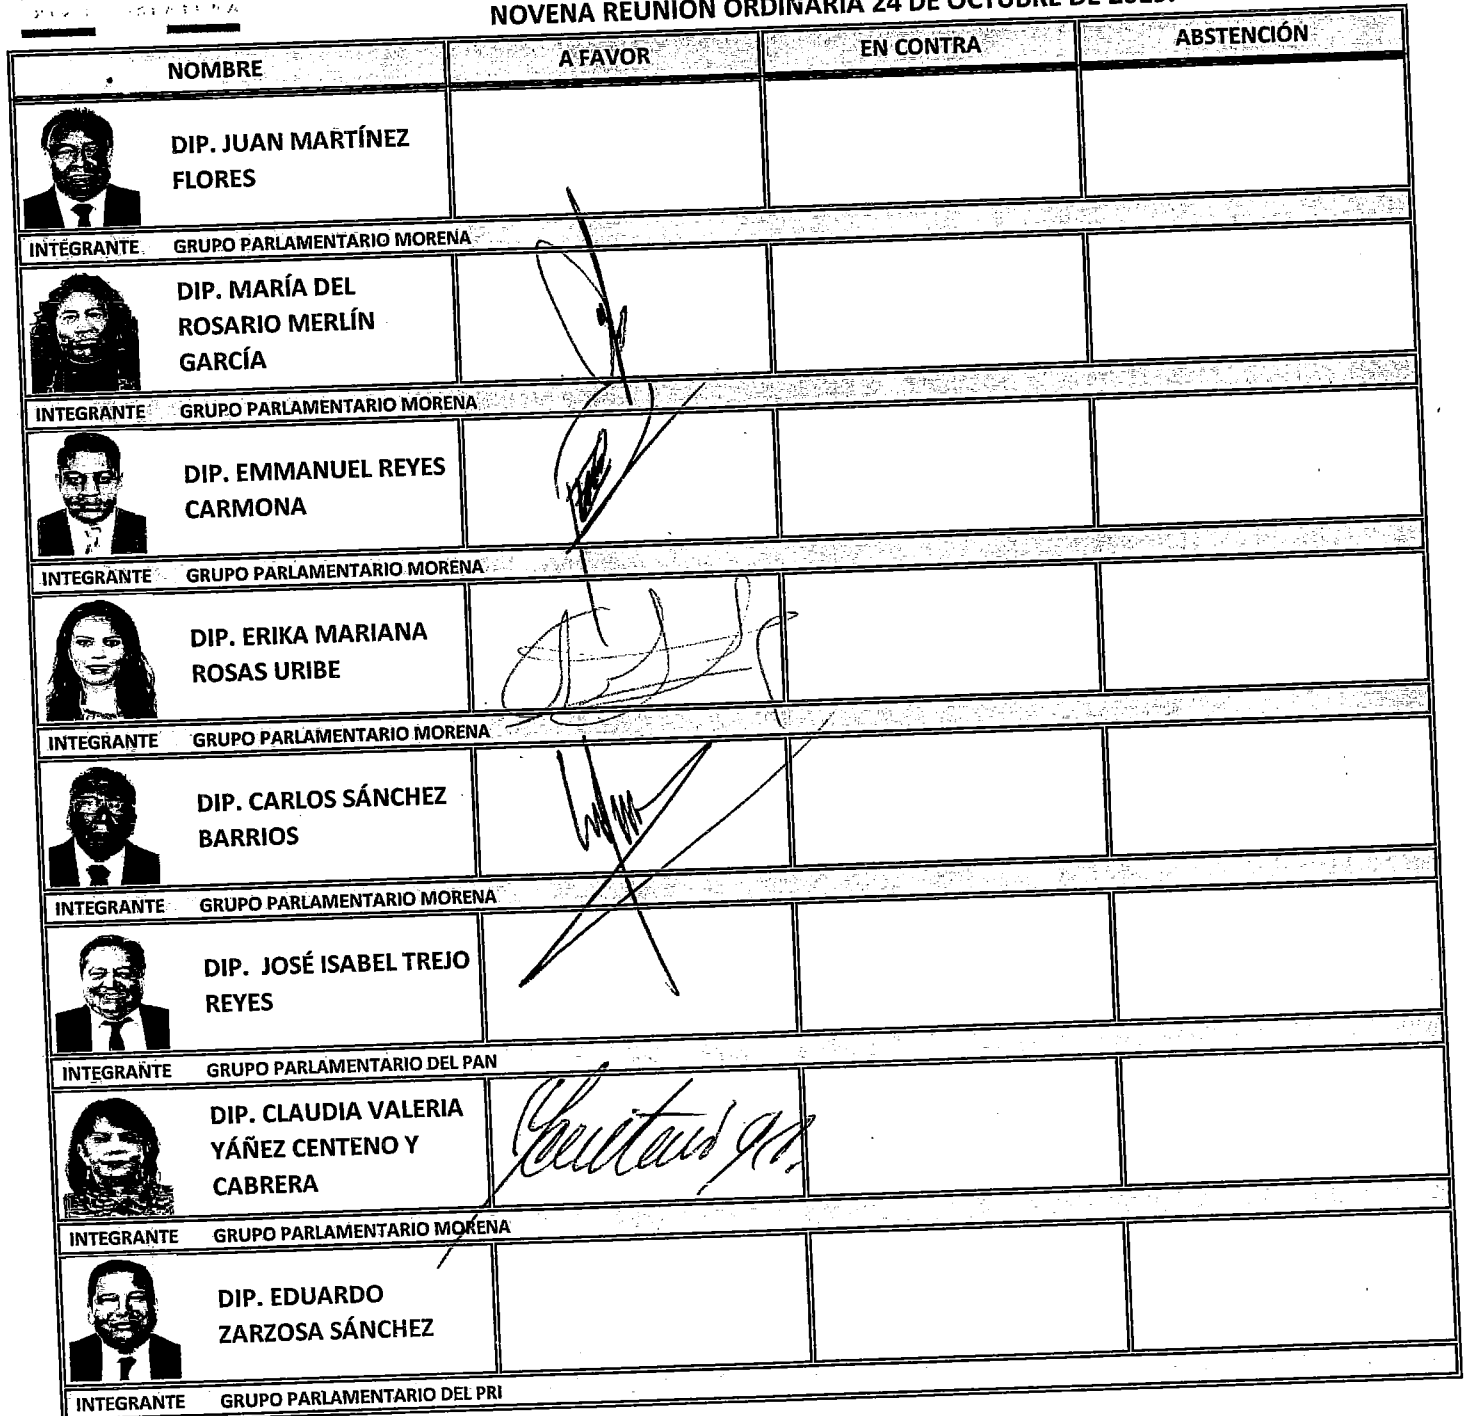 NOVENA REUNIÓN ORDINARIA 24 DE OCTUBRE DE
NOMBRE A FAVOR EN CONTRA ABSTENCIÓN
DIP. JUAN MARTÍNEZ
FLORES
INTEGRANTE GRUPO PARLAMENTARIO MORENA
DIP. MARÍA DEL
ROSARIO MERLÍN
GARCÍA
INTEGRANTE GRUPO PARLAMENTARIO MORENA
DIP. EMMANUEL REYES
CARMONA
INTEGRANTE GRUPO PARLAMENTARIO MORENA
DIP. ERIKA MARIANA
ROSAS URIBE
INTEGRANTE GRUPO PARLAMENTARIO MORENA
DIP. CARLOS SÁNCHEZ
BARRIOS
INTEGRANTE GRUPO PARLAMENTARIO MORENA
DIP. JOSÉ ISABEL TREJO
REYES
INTEGRANTE GRUPO PARLAMENTARIO DEL PAN
DIP. CLAUDIA VALERIA
YÁÑEZ CENTENO Y
CABRERA
INTEGRANTE GRUPO PARLAMENTARIO MORENA
DIP. EDUARDO
ZARZOSA SÁNCHEZ
INTEGRANTE GRUPO PARLAMENTARIO DEL PRI